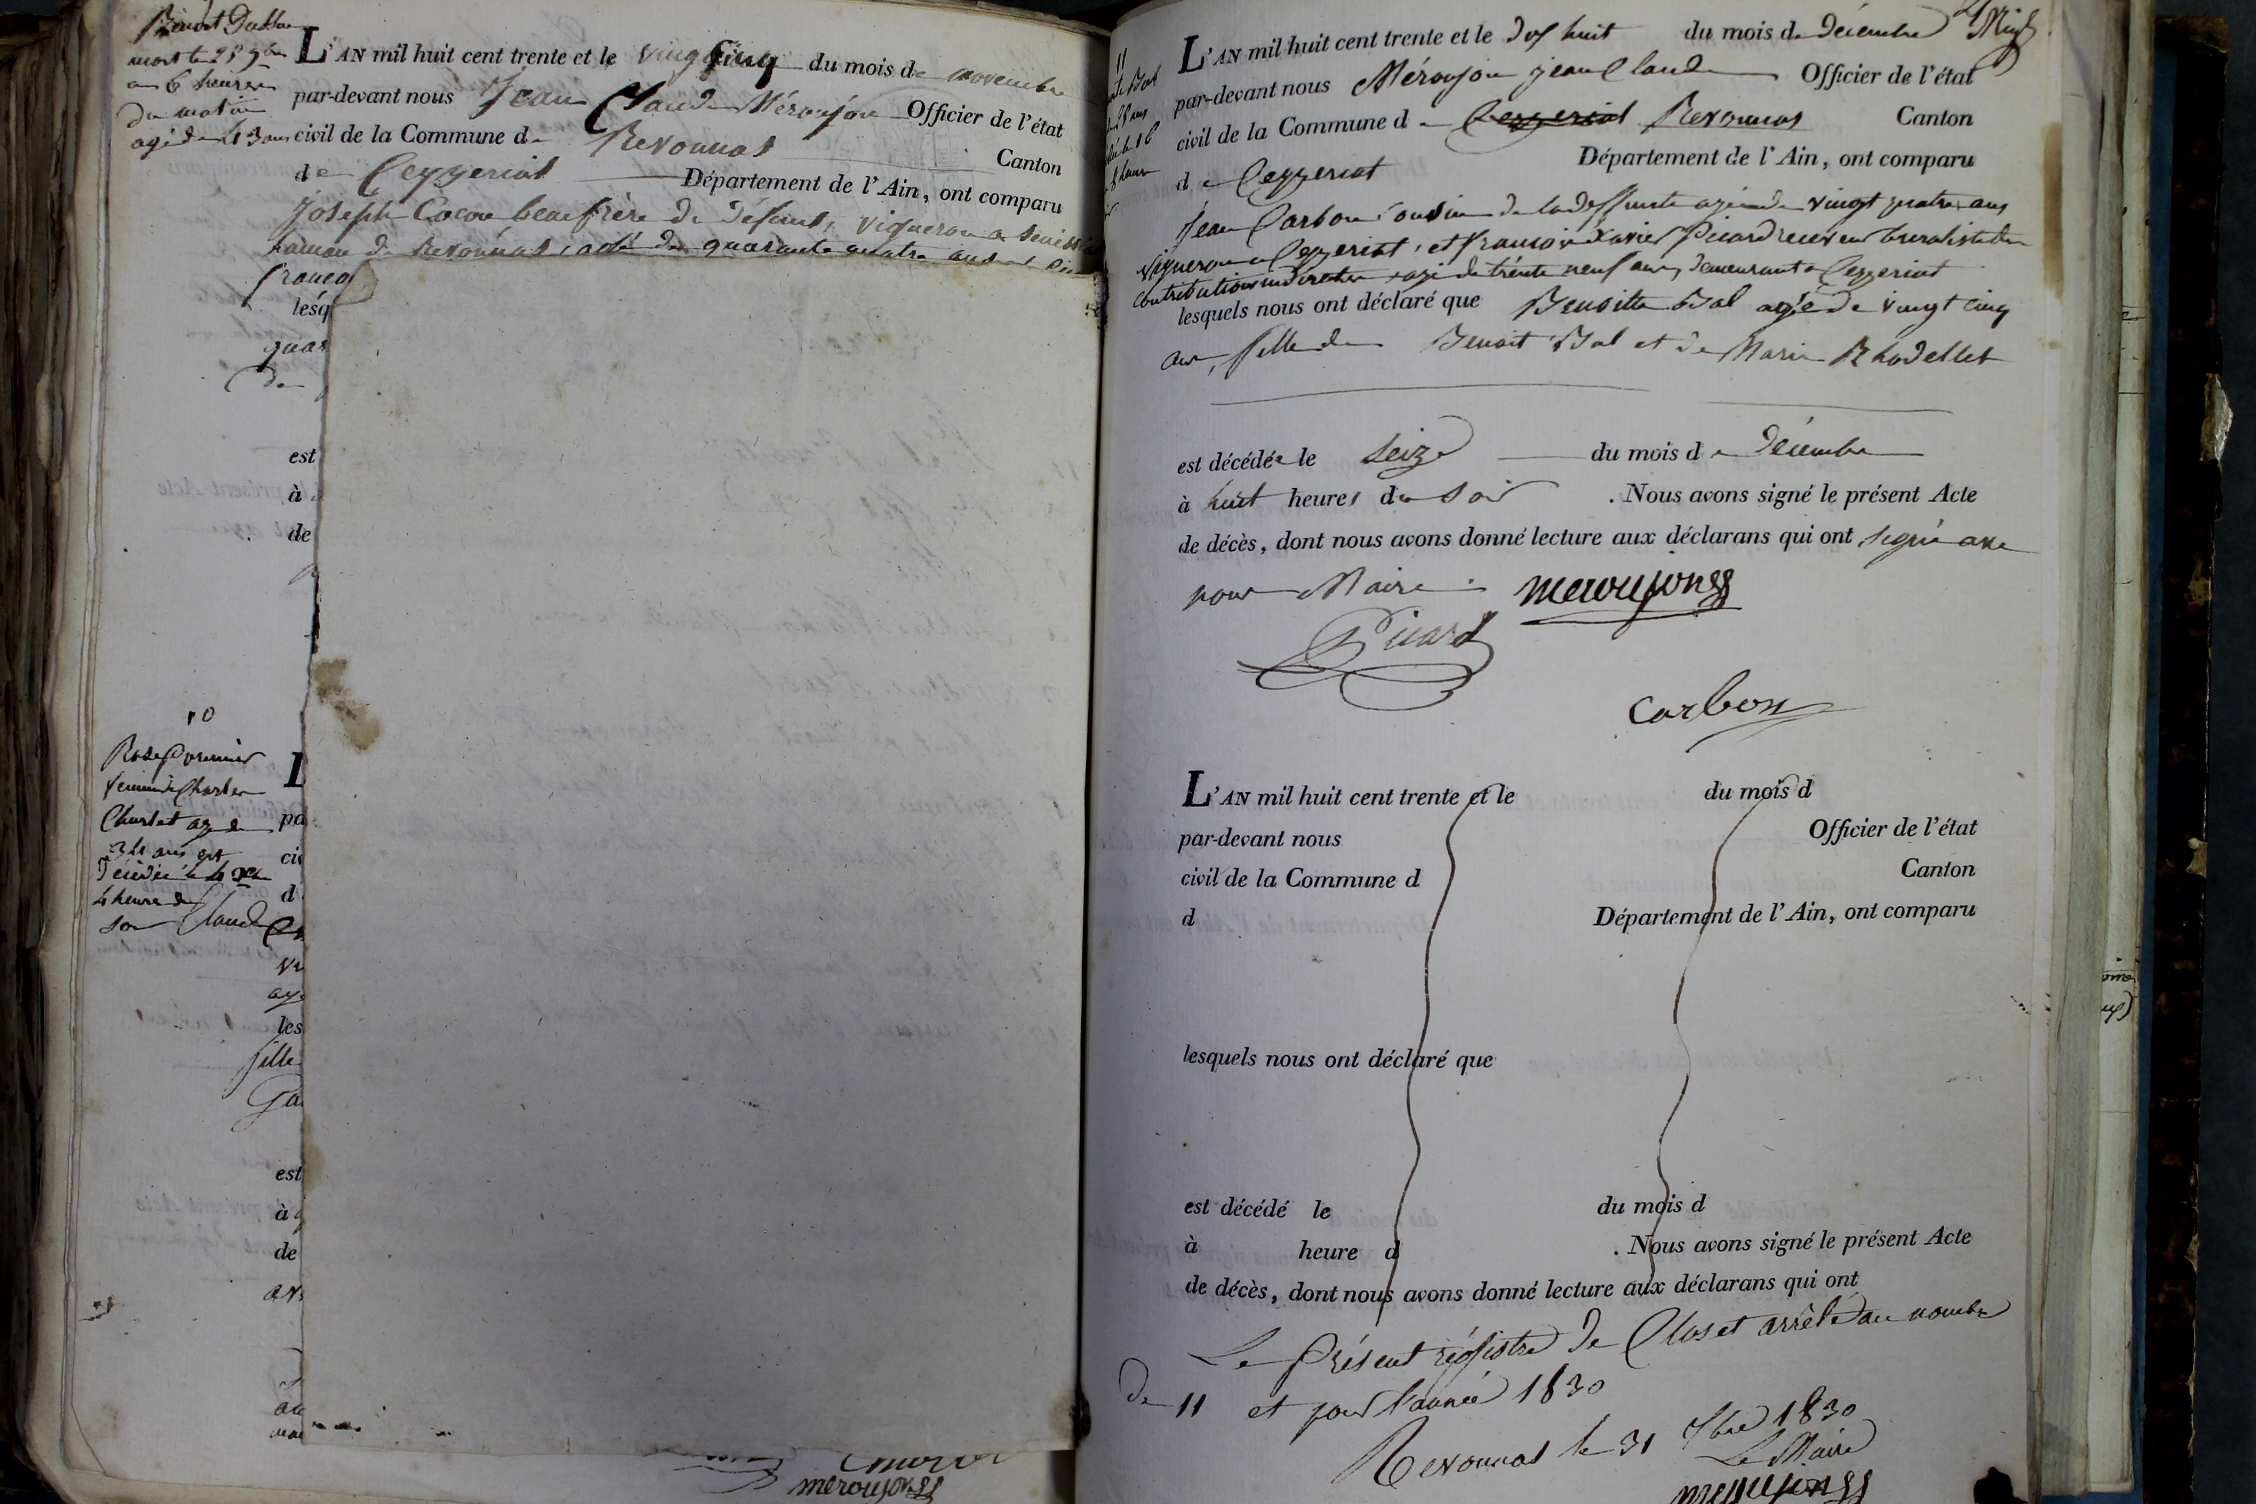 mort le 25 9bre
a 6 heures
du matin
agé de 43 ans
L'AN mil huit cent trente et le vingt cinq du mois de novembre
par-devant nous Jean Claude Méroujon Officier de l'état
civil de la Commune de Revonnas Canton
de Ceyzeriat Département de l'Ain, ont comparu
Joseph Cocon beaufrère du défunt, vigneron a
hameau de Revonnas, agé de quarante quatre ans et
françoi
lesq
quar
de
est
à
de
10
Rose
femme de Charles
Charlet agée de
34 ans est
décédée le 4 Xbre
4 heure du
soir
L
pa
civ
d
Claude
ve
agé
les
fille
Ga
est
à
de
ave
meroujon
11
Bal
ans
le 16
L'AN mil huit cent trente et le dix huit du mois de Décembre
par-devant nous Méroujon jean Claude Officier de l'état
civil de la Commune de Ceyzeriat Revonnas Canton
de Ceyzeriat Département de l'Ain, ont comparu
Jean Carbon cousin de la deffunte agé de vingt quatre ans
vigneron a Ceyzeriat, et françois Xavier Picard receveur buraliste des
contributions indirectes, agé de trente neuf ans, demeurant a Ceyzeriat
lesquels nous ont déclaré que Benoitte Bal agée de vingt cinq
ans, fille de Benoit Bal et de Marie Rhodellet
est décédée le Seize du mois de Décembre
à huit heures du soir . Nous avons signé le présent Acte
de décès, dont nous avons donné lecture aux déclarans qui ont signé avec
nous Maire. meroujon
Picard
Carbon
L'AN mil huit cent trente et le du mois d
par-devant nous Officier de l'état
civil de la Commune d Canton
d Département de l'Ain, ont comparu
lesquels nous ont déclaré que
est décédé le du mois d
à heure d . Nous avons signé le présent Acte
de décès, dont nous avons donné lecture aux déclarans qui ont
Le Présent régistre de Clos et arrêté au nombre
de 11 et pour l'année 1830
Revonnas le 31 Xbre 1830
Le Maire
meroujon